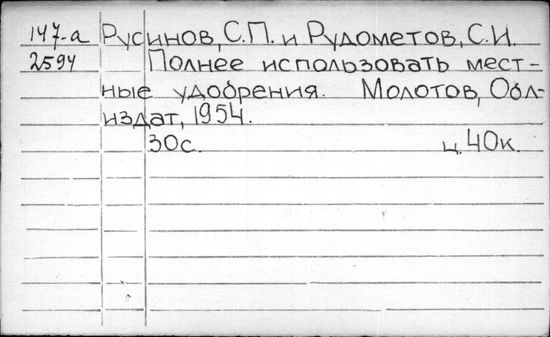 147-а Русинов, С.П. и Рудометов, С.И.
2594 Полнее использовать мест-
ные удобрения. Молотов, Обл-
издат, 1954.
30с. ц. 40к.